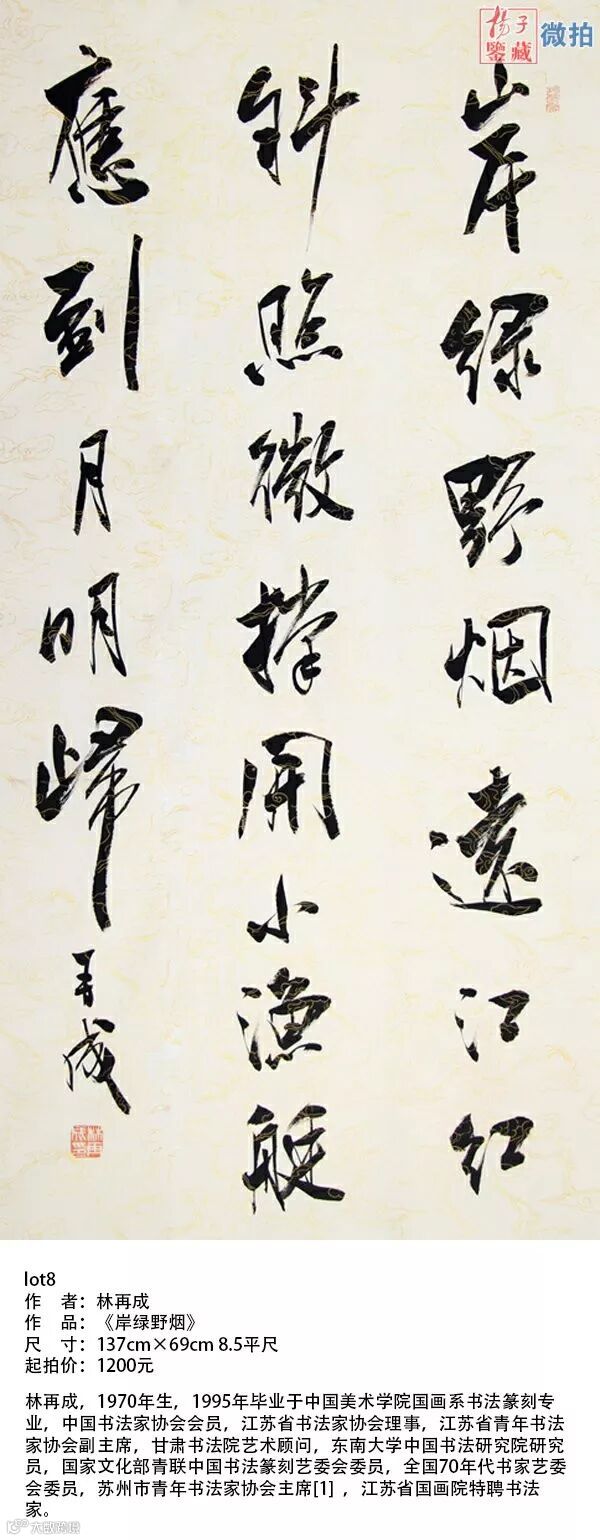 揚子
鑒藏
微拍
岸緑野烟遠江紅
斜照微撑開小漁艇
應到月明歸
再成
lot8
作 者：林再成
作 品：《岸绿野烟》
尺 寸：137cm×69cm 8.5平尺
起拍价：1200元
林再成，1970年生，1995年毕业于中国美术学院国画系书法篆刻专
业，中国书法家协会会员，江苏省书法家协会理事，江苏省青年书法
家协会副主席，甘肃书法院艺术顾问，东南大学中国书法研究院研究
员，国家文化部青联中国书法篆刻艺委会委员，全国70年代书家艺委
会委员，苏州市青年书法家协会主席[1] ，江苏省国画院特聘书法
家。